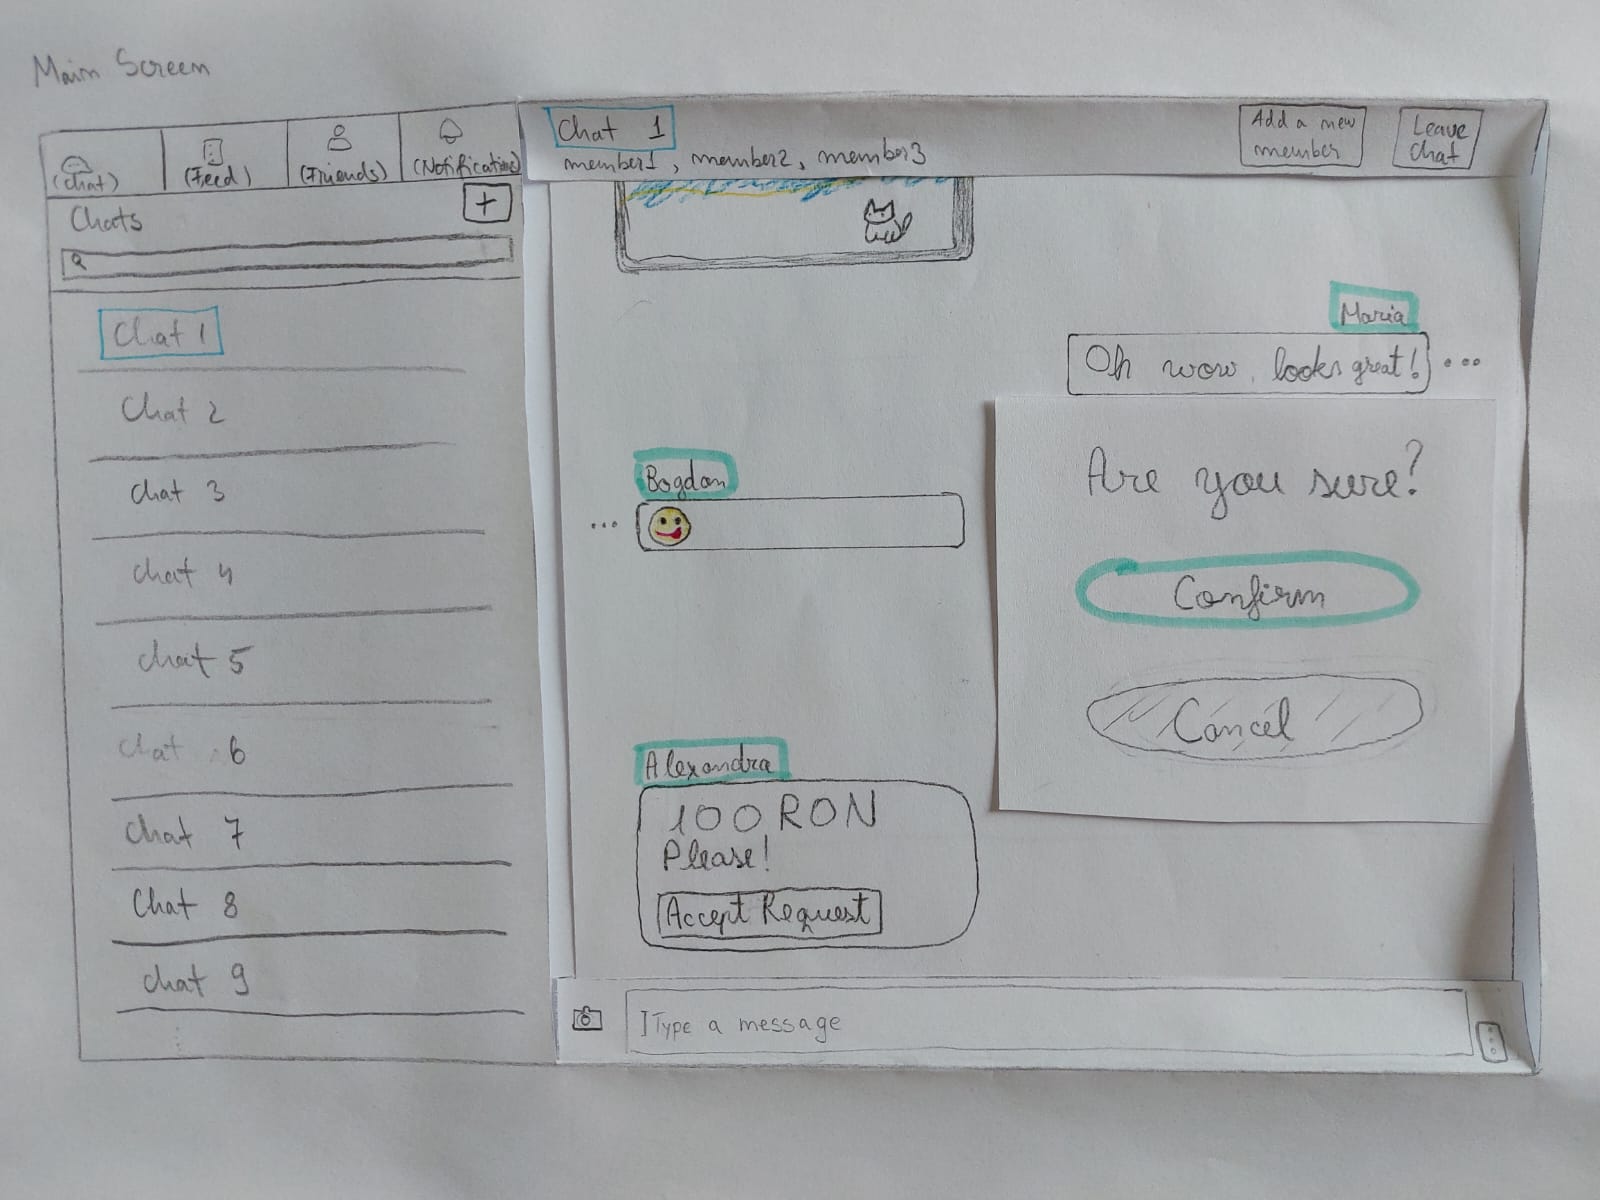 Main Screen
(Chat)
(Feed)
(Friends)
(Notifications)
Chats
+
Chat 1
Chat 2
Chat 3
Chat 4
Chat 5
Chat 6
Chat 7
Chat 8
Chat 9
Chat 1
member1, member2, member3
Add a new
member
Leave
Chat
Maria
Oh wow, looks great! ...
Bogdan
...
Are you sure?
Confirm
Cancel
Alexandra
100 RON
Please!
Accept Request
Type a message